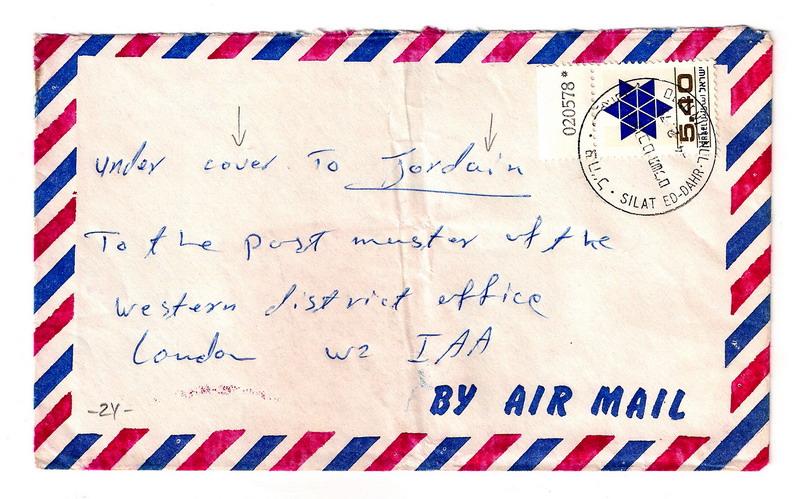 020578*
5.40
ישראל
ISRAEL
SILAT ED-DAHR
under cover To Jordain
To the post muster of the
western district office
London W2 IAA
BY AIR MAIL
-24-